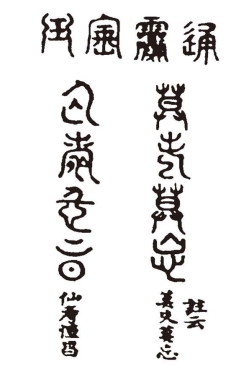 通靈寶玉
莫失莫忘
註云
莫失莫忘
仙壽恒昌
仙壽恒昌